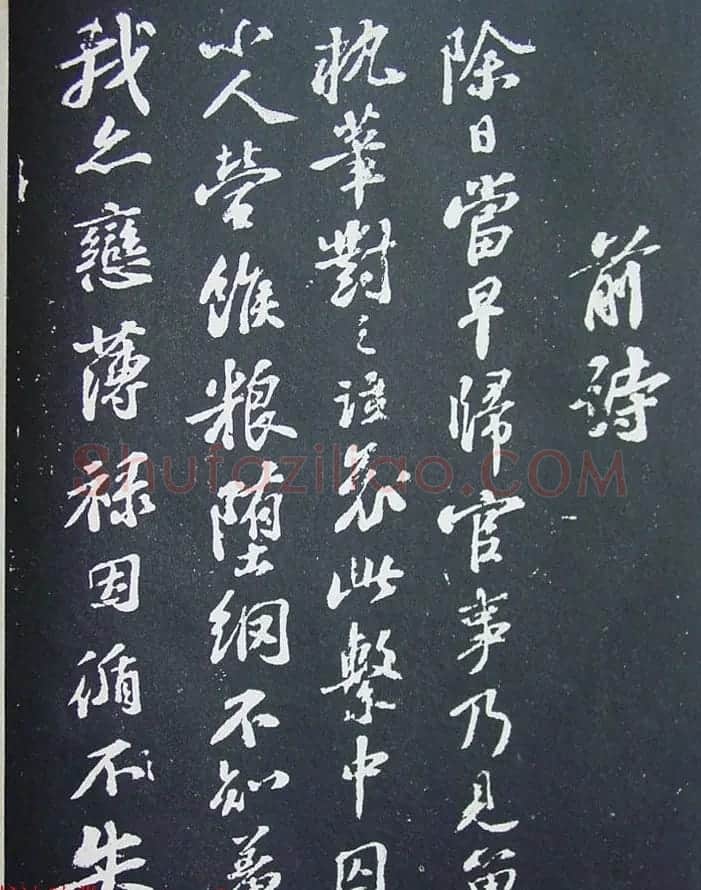 前詩
除日當早歸官事乃見留
執筆對之泣哀此繫中囚
小人營餱粮墮網不知羞
我亦戀薄祿因循不失
Shufaziliao.COM